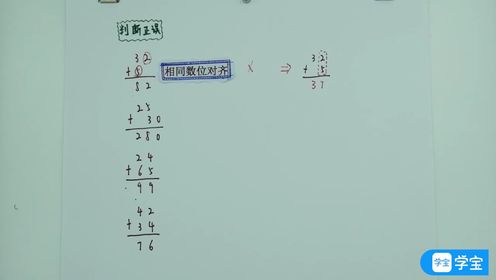 判断正误
3 2
+ 5
8 2
相同数位对齐
×
⇒
3 2
+ 5
3 7
2 5
+ 3 0
2 8 0
2 4
+ 6 5
9 9
4 2
+ 3 4
7 6
学宝 学宝